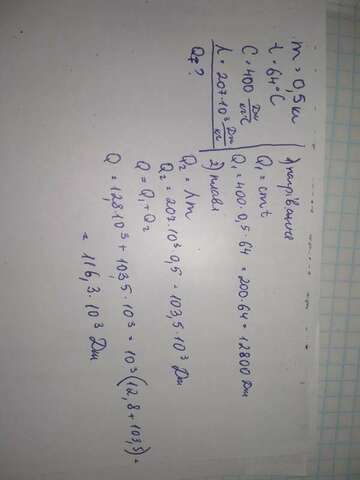 m = 0,5 кг
t = 64°C
C = 400 Дж/кг°C
λ = 207·10³ Дж/кг
Q = ?
1) нагрівання
Q₁ = cmt
Q₁ = 400·0,5·64 = 200·64 = 12800 Дж
2) плавл
Q₂ = λm
Q₂ = 207·10³ 0,5 = 103,5·10³ Дж
Q = Q₁ + Q₂
Q = 12,8·10³ + 103,5·10³ = 10³(12,8 + 103,5) =
= 116,3·10³ Дж